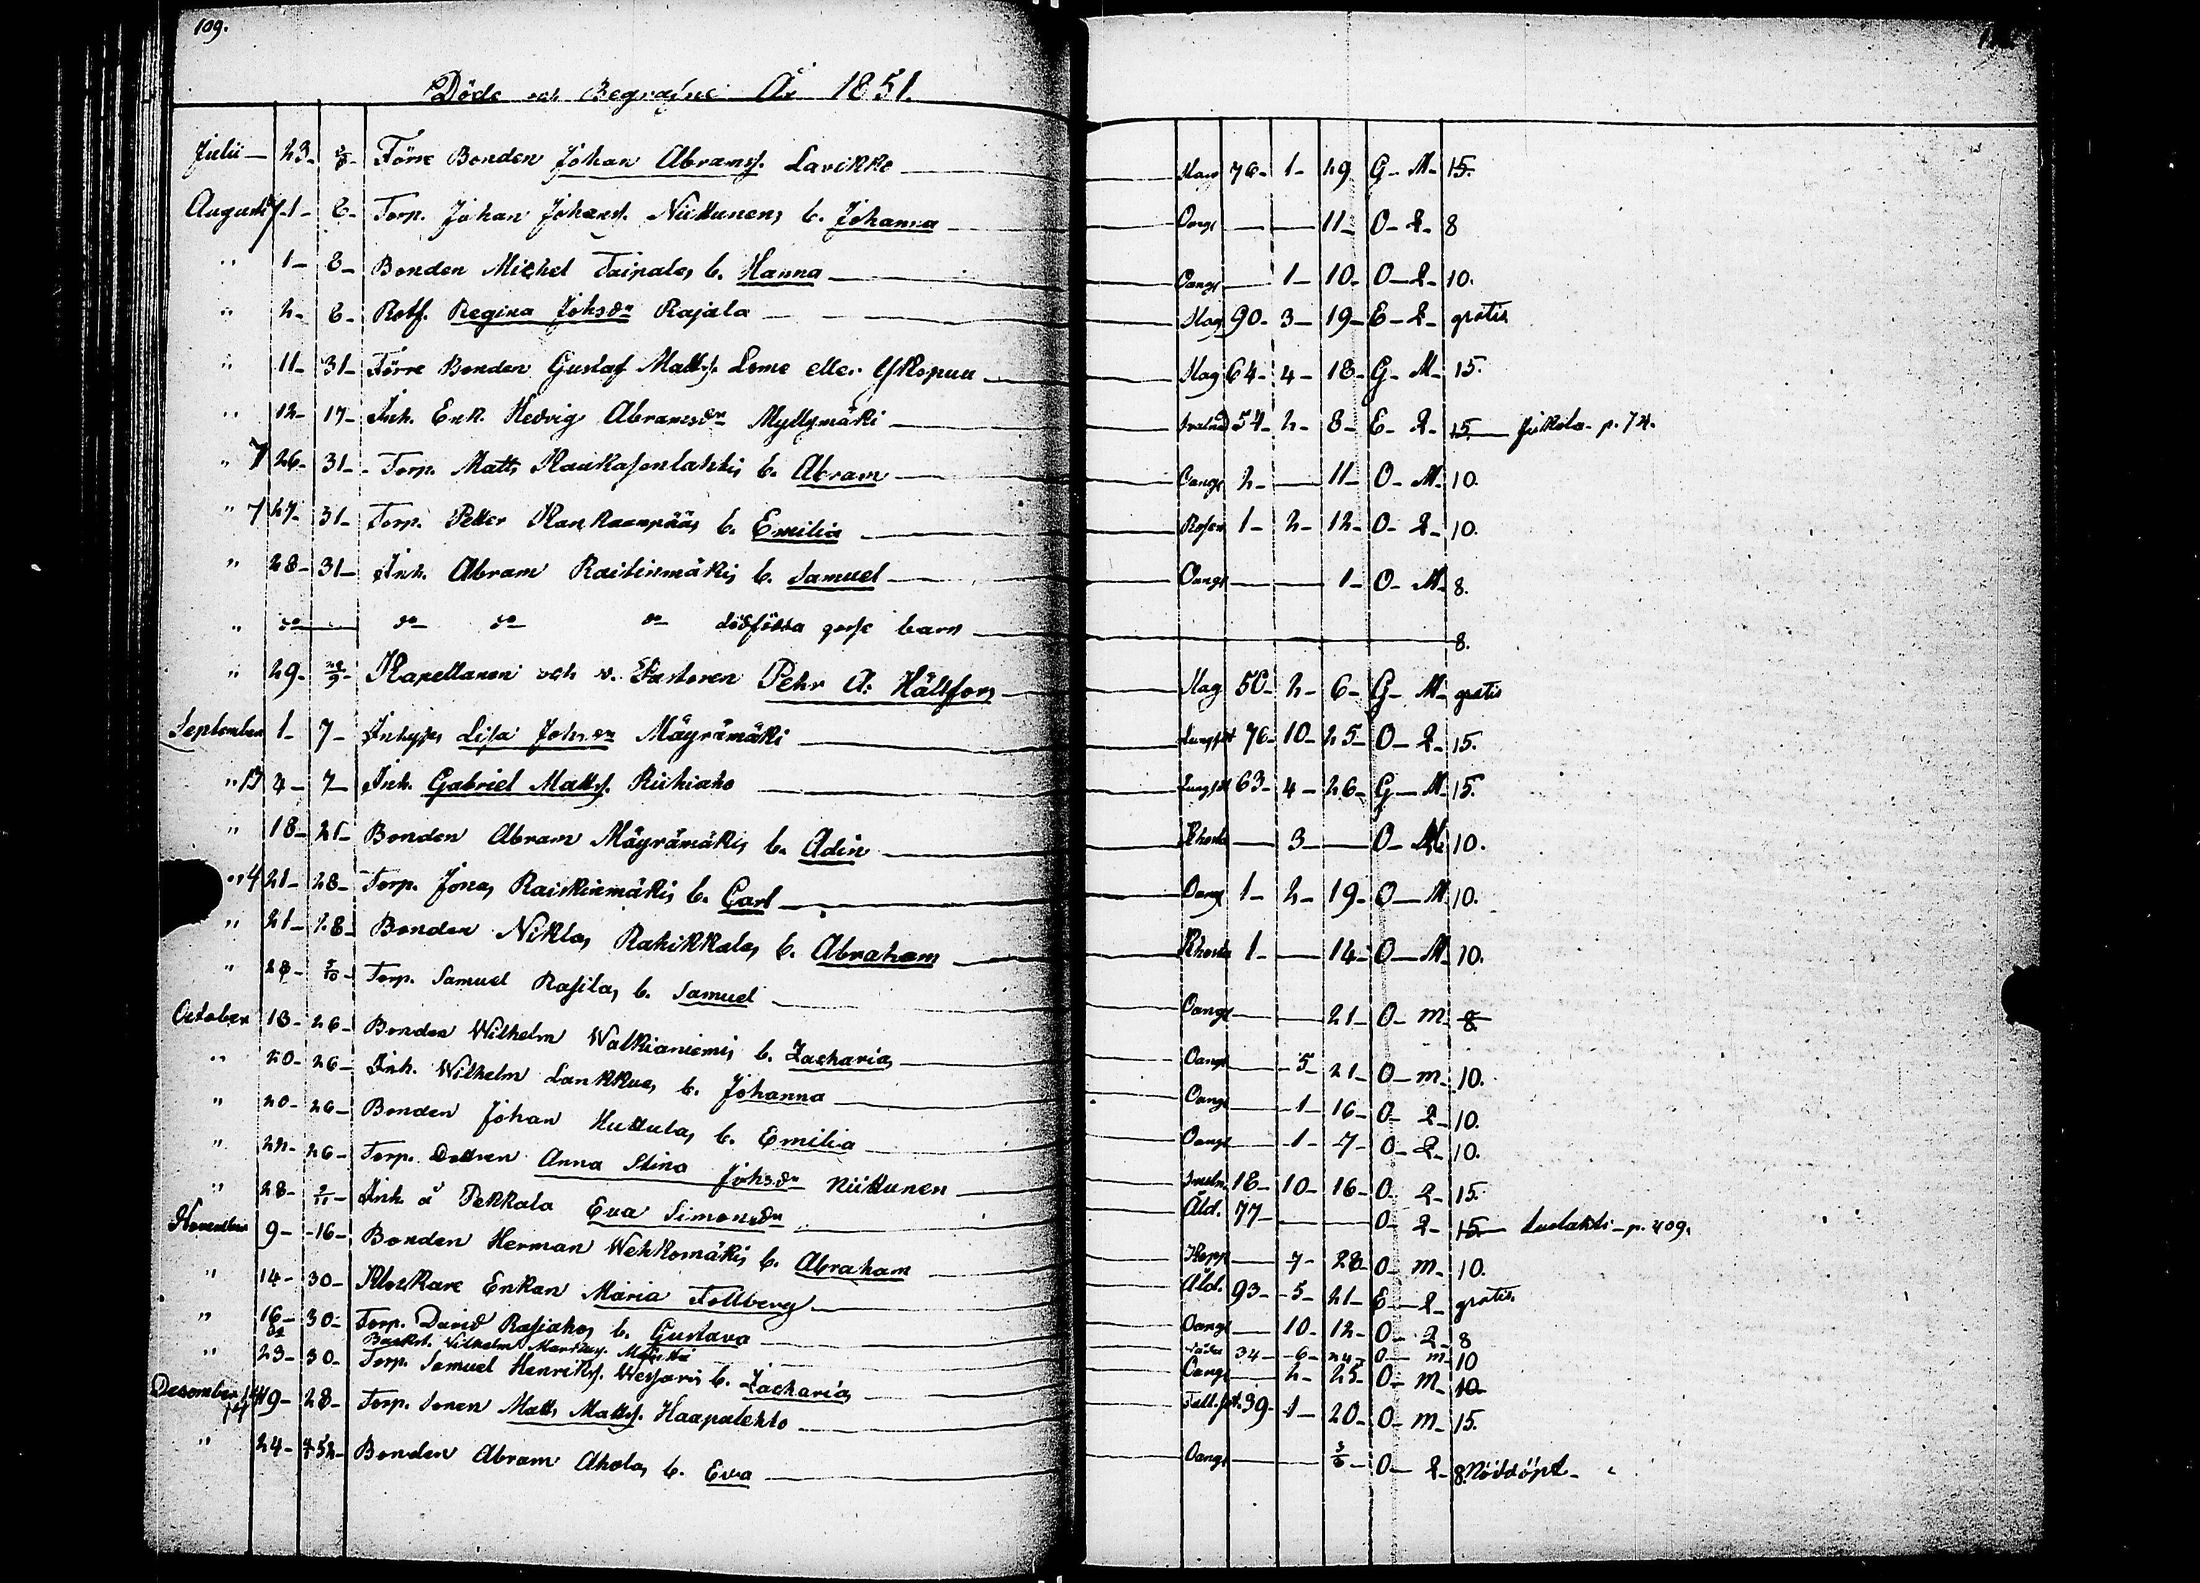 109.
Döde och Begrafne År 1851.
Julii 23 Förre Bonden Johan Abramss. Lavikko Slag 76 1 29 G M 15.
Augusti 1 6 Torp. Johan Johanss. Niittunens b. Johanna Oangt 11 O Q 8
" 1 8 Bonden Michel Taipales b. Hanna Oangt 1 10 O Q 10.
" 2 6 Rotf. Regina Johsdr Rajala Slag 90 3 19 E Q gratis
" 11 31 Förre Bonden Gustaf Matts. Lome eller Yskopuu Slag 64 4 18 G M 15.
" 12 17 Inh. Enk. Hedvig Abramsdr Myllymäki 54 2 8 E Q 15 Jukola p. 74.
" 7 26 31 Torp. Matts Kaukasenlahtis b. Abram Oangt 2 11 O M 10.
" 7 27 31 Torp. Petter Kankaanpääs b. Emilia 1 2 12 O Q 10.
" 28 31 Inh. Abram Raitinmäkis b. Samuel Oangt 1 O M 8.
" do do do do dödfödda gosse barn 8.
" 29 Kapellanen och v. Pastoren Pehr A. Hällfors Slag 50 2 6 G M gratis
September 1 7 Inhyses Lisa Johsdr Mäyrämäki Lungsot 76 10 25 O Q 15.
" 4 7 Inh. Gabriel Matts. Riihiaho Lungsot 63 4 26 G M 15.
" 18 21 Bonden Abram Mäyrämäkis b. Adin 3 O M 10.
" 4 21 28 Torp. Jonas Raiskinmäkis b. Carl Oangt 1 2 19 O M 10.
" 21 28 Bonden Niklas Rahikkalas b. Abraham 1 14 O M 10.
" 28 5/10 Torp. Samuel Rasilas b. Samuel Oangt 21 O M 8
October 18 26 Bonden Wilhelm Walkianiemis b. Zacharias Oangt 5 21 O M 10.
" 20 26 Inh. Wilhelm Lankkus b. Johanna Oangt 1 16 O Q 10.
" 20 26 Bonden Johan Huttulas b. Emilia Oangt 1 7 O Q 10.
" 22 26 Torp. Dottren Anna Stina Johsdr Niittunen 18 10 16 O Q 15.
" 28 2/11 Inh. å Pekkala Eva Simonsdr Åld. 77 O Q 15 p. 409.
November 9 16 Bonden Herman Wehkomäkis b. Abraham Kopp 7 28 O M 10.
" 14 30 Klockare Enkan Maria Follberg Åld. 93 5 21 E Q gratis
" 16 30 Torp. David Rasiahos b. Gustava Oangt 10 12 O Q 8
Backst. Wilhelm 34 6 24 O M 10
" 23 30 Torp. Samuel Henrikss. Wessaris b. Zacharias Oangt 2 25 O M 10
December 19 28 Torp. Sonen Matts Matts. Haapalehto 39 1 20 O M 15.
" 24 Bonden Abram Aholas b. Eva Oangt O Q 8. Nöddöpt